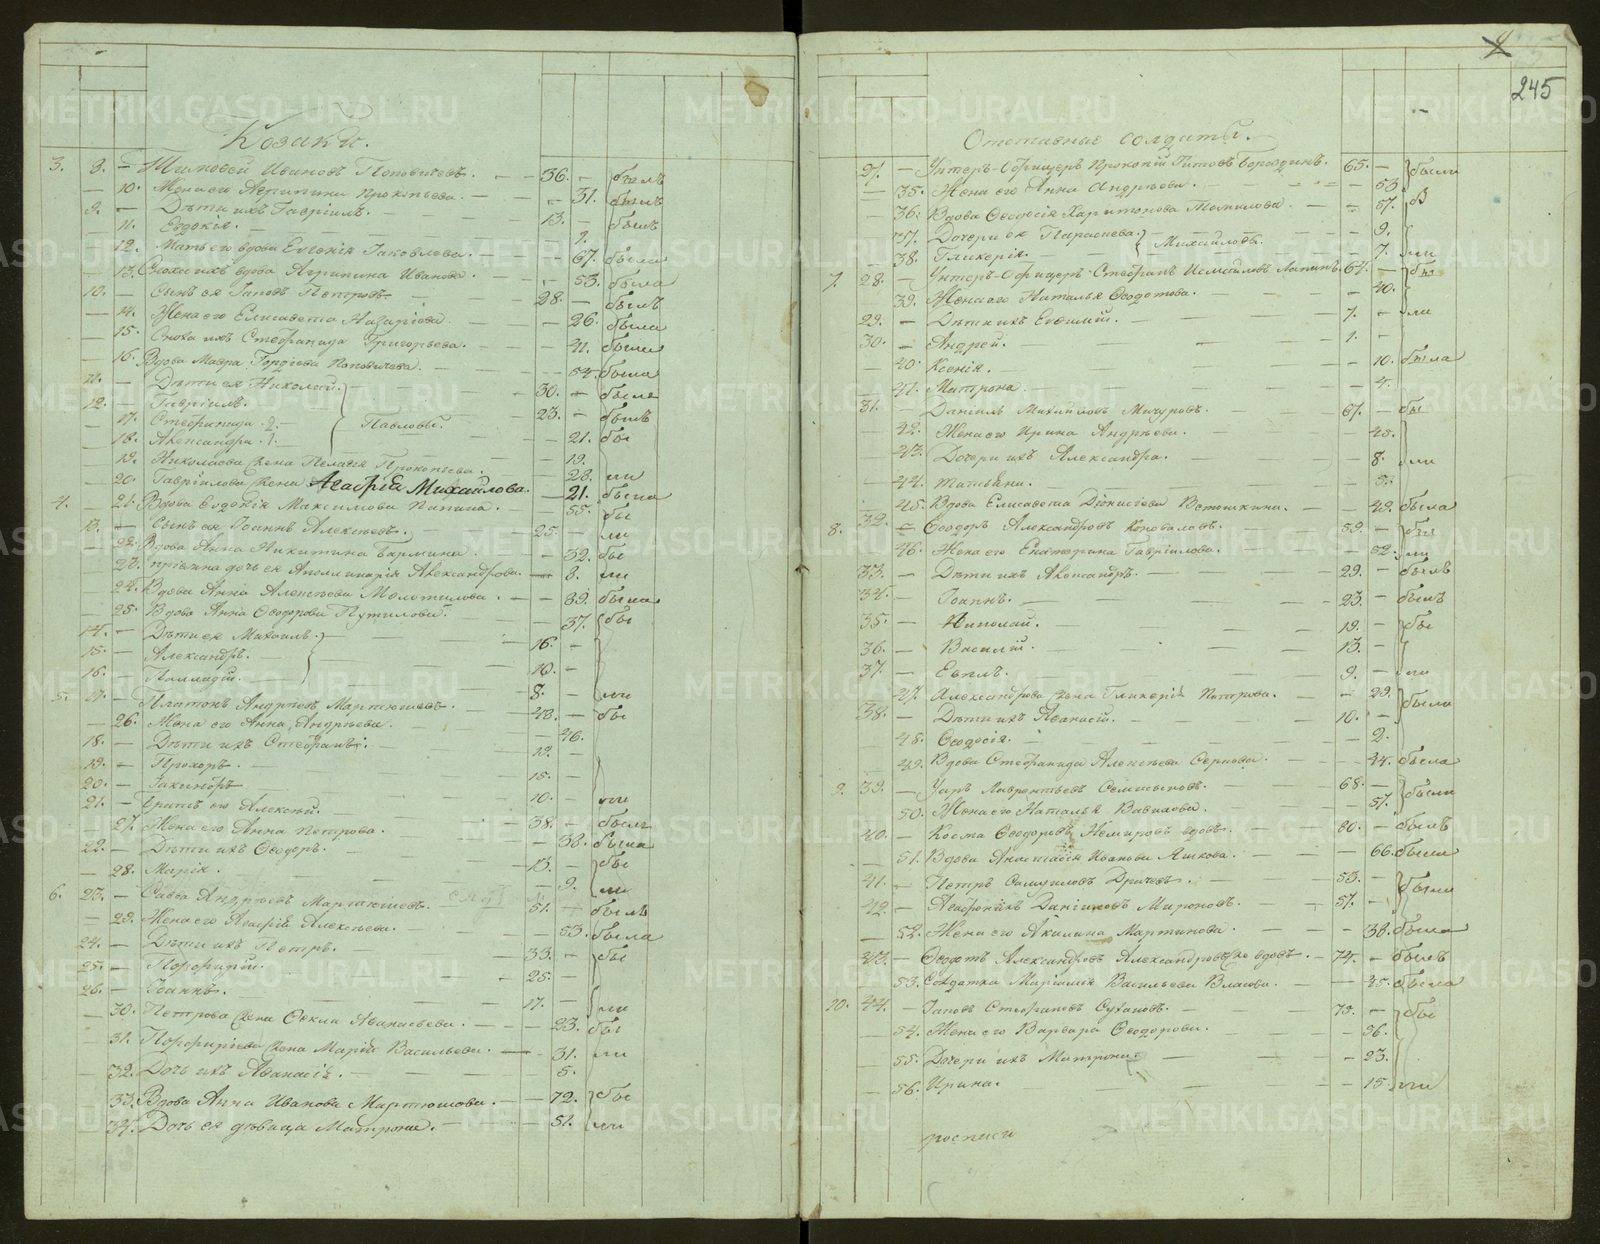 245
Козаки.
3. 8. — Тимофей Ивановъ Поповичевъ. 36. — былъ
10. Жена его Агрипина Прокопьева. 31. былъ
9. — Дѣти ихъ Гавріилъ. 13. — былъ
11. Евдокія. 9.
12. Мать его вдова Евгенія Іаковлева. 67. была
13. Сноха ихъ вдова Агрипина Иванова. 53. была
10. — Сынъ ея Іаковъ Петровъ 28. — былъ
14. Жена его Елисавета Назаріева. 26. была
15. Сноха ихъ Стефанида Григорьева. 41. была
16. Вдова Мавра Гордіева Поповичева. 54. была
11. — Дѣти ея Николай. 30. — была
12. — Гавріилъ. 23. — былъ
17. Стефанида 2. Павловы. 21. бы
18. Александра 1. 19.
19. Николаева жена Пелагія Прокопьева. 28. ли
20. Гавріилова жена Агафія Михайлова. 21. была
4. 21. Вдова Евдокія Максимова Папина. 55. бы
13. — Сынъ ея Іоаннъ Алексѣевъ. 25. — ли
22. Вдова Анна Никитина Бармина. 32. бы
23. пріемна дочь ея Аполлинарія Александрова. 8. ли
24. Вдова Анна Алексѣева Молотилова. 39. была
25. Вдова Анна Ѳеодорова Путилова. 37. бы
14. — Дѣти ея Михаилъ. 16. —
15. — Александръ. 10. —
16. — Палладій. 8. — ли
5. 17. — Платонъ Андреевъ Мартюшевъ. 43. — бы
26. Жена его Анна Андрѣева. 46.
18. — Дѣти ихъ Стефанъ. 19. —
19. — Прохоръ. 15. —
20. — Іакинфъ 10. — ли
21. — Братъ его Алексѣй. 38. — былъ
27. Жена его Анна Петрова. 38. была
22. — Дѣти ихъ Ѳеодоръ. 13. — бы
28. Марія. 9. ли
6. 23. — Савва Андреевъ Мартюшевъ. 51. — былъ
29. Жена его Агафія Алексѣева. 53. была
24. — Дѣти ихъ Петръ. 33. — бы
25. — Порфирій. 25. —
26. — Іоаннъ. 17. — ли
30. Петрова жена Ѳекла Аѳанасьева. 23. бы
31. Порфиріева жена Марія Васильева. 31. ли
32. Дочь ихъ Аѳанасія. 5.
33. Вдова Анна Иванова Мартюшова. 72. бы
34. Дочь ея дѣвица Матрона. 51. ли
Отставные солдаты.
27. — Унтеръ-Офицеръ Прокопій Титовъ Бороздинъ. 65. — были
35. Жена его Анна Андрѣева. 53.
36. Вдова Ѳеодосія Харитонова Томилова. 57. б
37. Дочери ея Параскева. Михайловы. 9.
38. Гликерія. 7. ли
7. 28. — Унтеръ-Офицеръ Стефанъ Исмайловъ Лапинъ. 67. — бы
39. Жена его Наталья Ѳеодотова. 40.
29. — Дѣти ихъ Евѳимій. 7. — ли
30. — Андрей. 1. —
40. Ксенія. 10. была
41. Матрона. 4.
31. — Даніилъ Михайловъ Мичуровъ. 67. — бы
42. Жена его Ирина Андрѣева. 45.
43. Дочери ихъ Александра. 8. ли
44. Татьяна. 3.
45. Вдова Елисавета Діонисіева Ветошкина. 49. была
8. 32. — Ѳеодоръ Александровъ Коноваловъ. 59. — бы
46. Жена его Екатерина Гавріилова. 52. ли
33. — Дѣти ихъ Александръ. 29. — былъ
34. — Іоаннъ. 23. — былъ
35. — Николай. 19. — бы
36. — Василій. 13. —
37. — Евплъ. 9. — ли
47. Александрова жена Гликерія Петрова. 29. была
38. — Дѣти ихъ Аѳанасій. 10. —
48. Ѳеодосія. 2.
49. Вдова Стефанида Алексѣева Сергѣева. 44. была
9. 39. — Уаръ Лаврентьевъ Семисыновъ. 68. — были
50. Жена его Наталья Вавилова. 57.
40. — Косма Ѳеодоровъ Немировъ вдовъ. 80. — былъ
51. Вдова Анастасія Иванова Яшкова. 66. была
41. — Петръ Самуиловъ Драчевъ. 53. — были
42. — Агафоникъ Даніиловъ Мироновъ. 57. —
52. Жена его Акилина Мартинова. 38. была
43. — Ѳеодотъ Александровъ Александровъ же вдовъ. 74. — былъ
53. Солдатка Маріамія Васильева Власова. 45. была
10. 44. — Іаковъ Стефановъ Сухановъ. 73. — бы
54. Жена его Варвара Ѳеодорова. 56.
55. Дочери ихъ Матрона. 23.
56. Ирина. 15. ли
росписи
METRIKI.GASO-URAL.RU